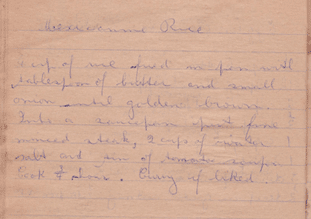 Rice
cup of rice fried in pan until
tablespoon of butter and small
onion until golden brown.
a saucepan
minced steak, 2 cups of water
salt and tin of tomato soup
Cook ½ hour. Curry if liked.